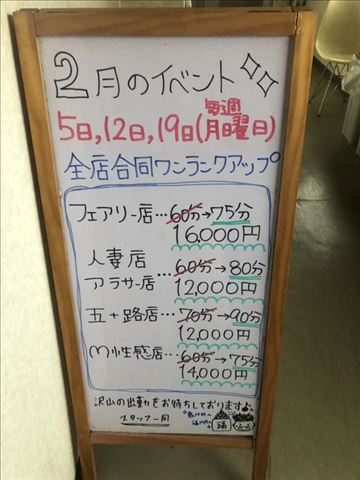 2月のイベント
毎週
5日,12日,19日(月曜日)
全店合同ワンランクアップ
フェアリー店…60分→75分
16,000円
人妻店
アラサー店…60分→80分
12,000円
五十路店…70分→90分
12,000円
M性感店…60分→75分
14,000円
沢山の出勤をお待ちしております♪
スタッフ一同
福